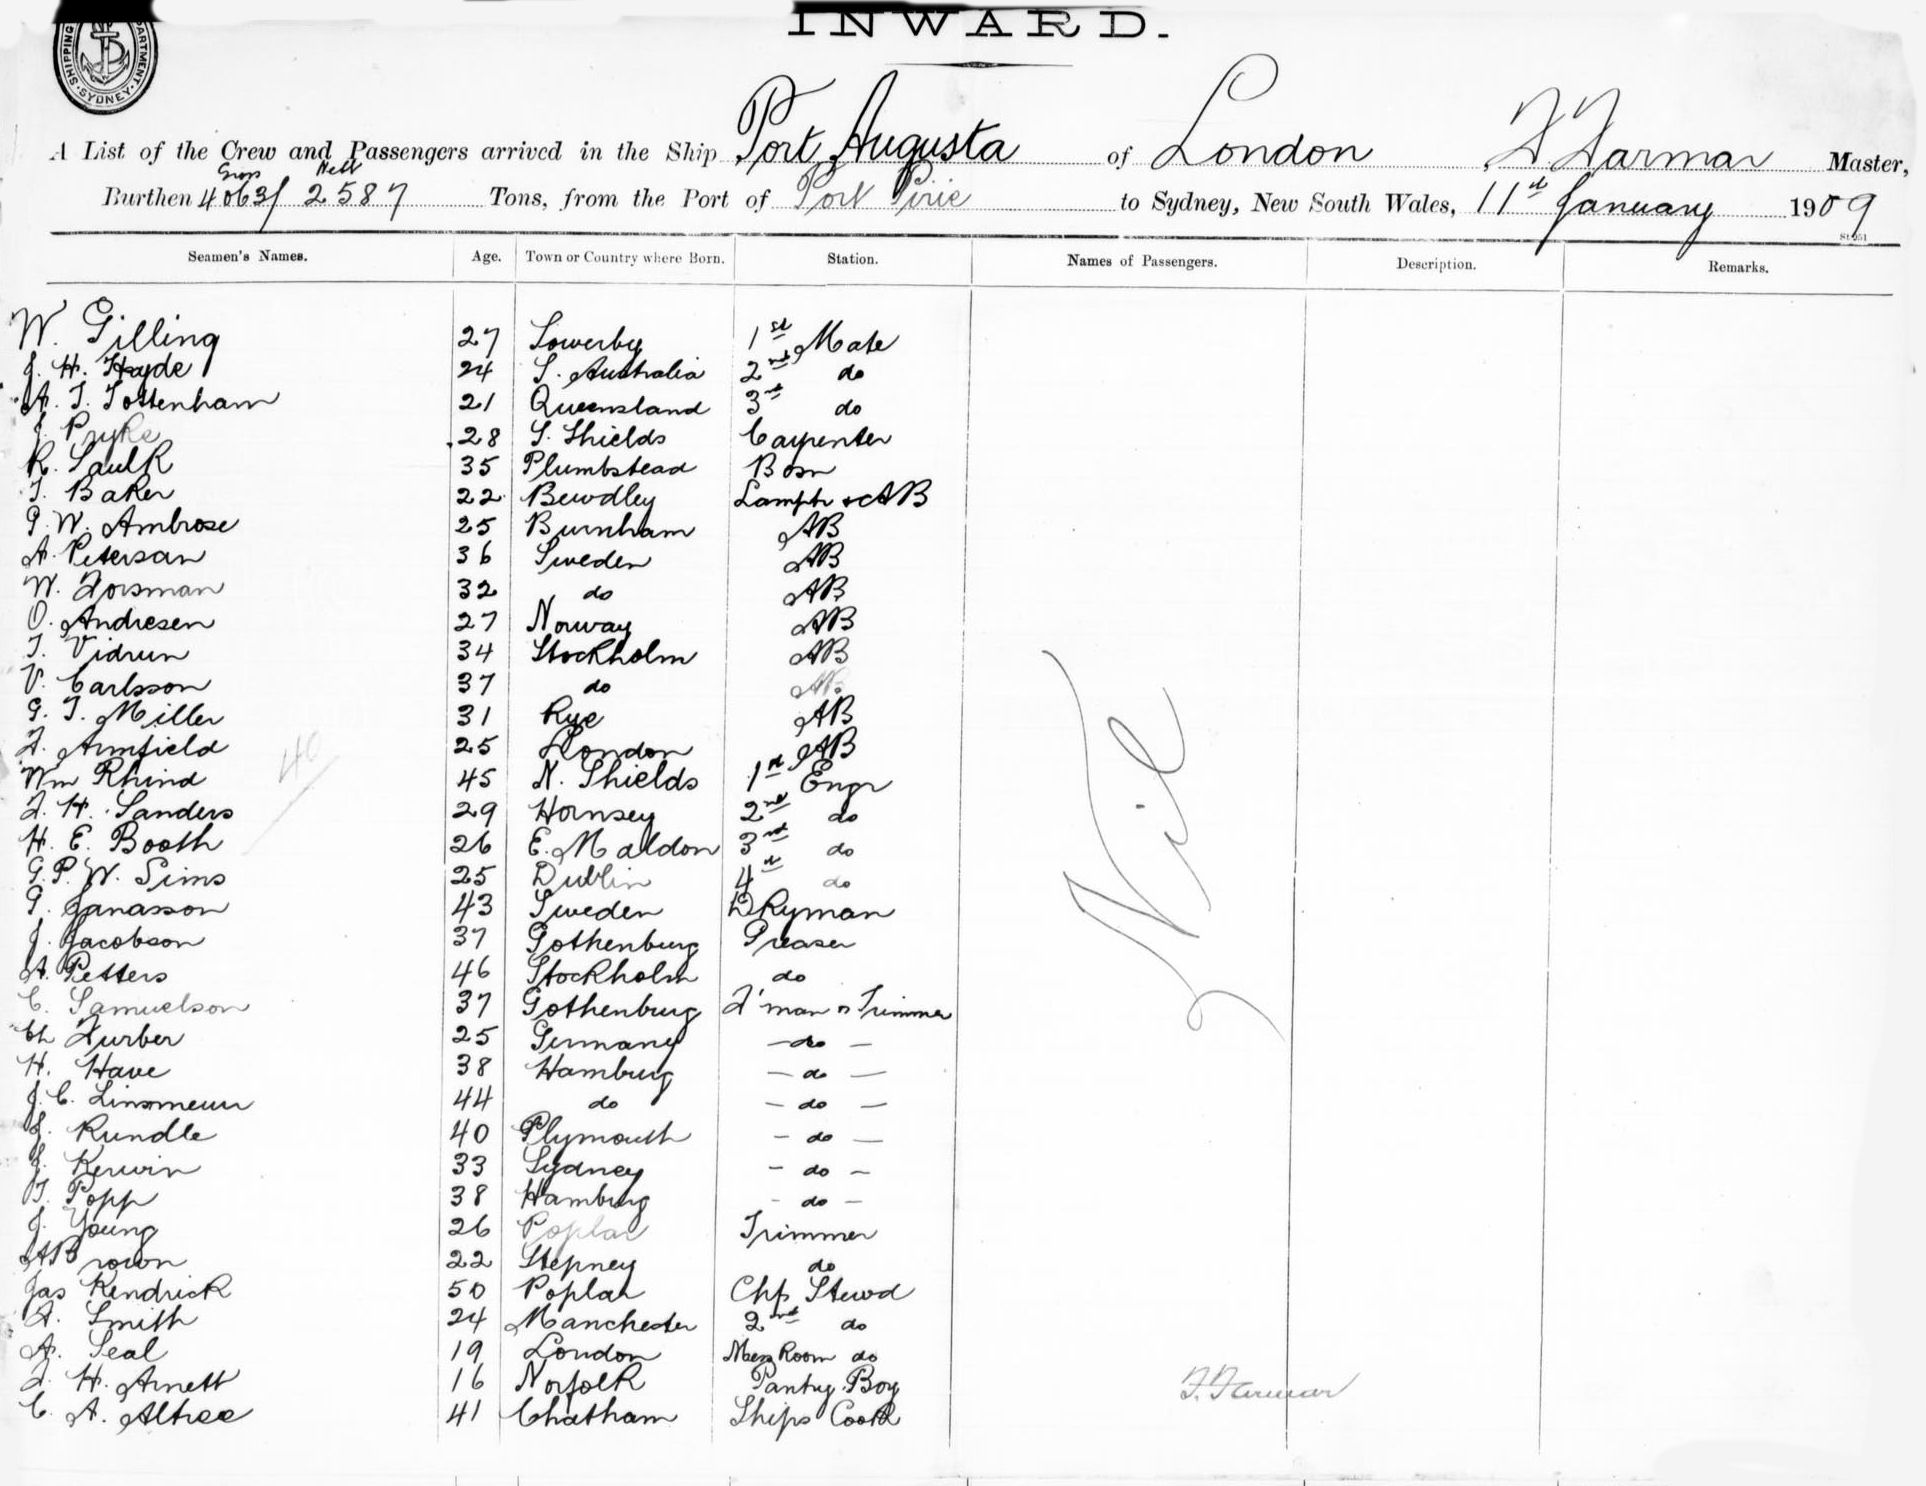 INWARD.
SHIPPING DEPARTMENT SYDNEY
A List of the Crew and Passengers arrived in the Ship Port Augusta of London F Farmar Master,
Gross Nett
Burthen 4063/ 2587 Tons, from the Port of Port Pirie to Sydney, New South Wales, 11th January 1909
Seamen's Names. Age. Town or Country where Born. Station. Names of Passengers. Description. Remarks.
W. Gilling 27 Sowerby 1st Mate
J. H. Hyde 24 S. Australia 2nd do
A. T. Tottenham 21 Queensland 3rd do
J. Pryke 28 S. Shields Carpenter
R. Saulk 35 Plumbstead Bosn
T. Baker 22 Bewdley Lamptr & AB
G. W. Ambrose 25 Burnham AB
A. Petersan 36 Sweden AB
W. Forsman 32 do AB
O. Andresen 27 Norway AB
T. Vidrun 34 Stockholm AB
V. Carlsson 37 do AB
G. T. Miller 31 Rye AB
F. Armfield 25 London AB
Wm Rhind 45 N. Shields 1st Engr
F. H. Sanders 29 Hornsey 2nd do
H. E. Booth 26 E. Maldon 3rd do
G. P. W. Sims 25 Dublin 4th do
G. Janasson 43 Sweden DKyman
J. Jacobson 37 Gothenburg Greaser
A. Petters 46 Stockholm do
C. Samuelson 37 Gothenburg F'man & Trimmer
Ch Furber 25 Germany - do -
H. Have 38 Hamburg - do -
J. C. Linsmeur 44 do - do -
J. Rundle 40 Plymouth - do -
J. Kerwin 33 Sydney - do -
T. Popp 38 Hamburg - do -
J. Young 26 Poplar Trimmer
A Brown 22 Stepney do
Jas Kendrick 50 Poplar Chf Stewd
A. Smith 24 Manchester 2nd do
A. Seal 19 London Mess Room do
F. H. Arnett 16 Norfolk Pantry Boy
C. A. Altree 41 Chatham Ships Cook
40
Nil
F. Farmar